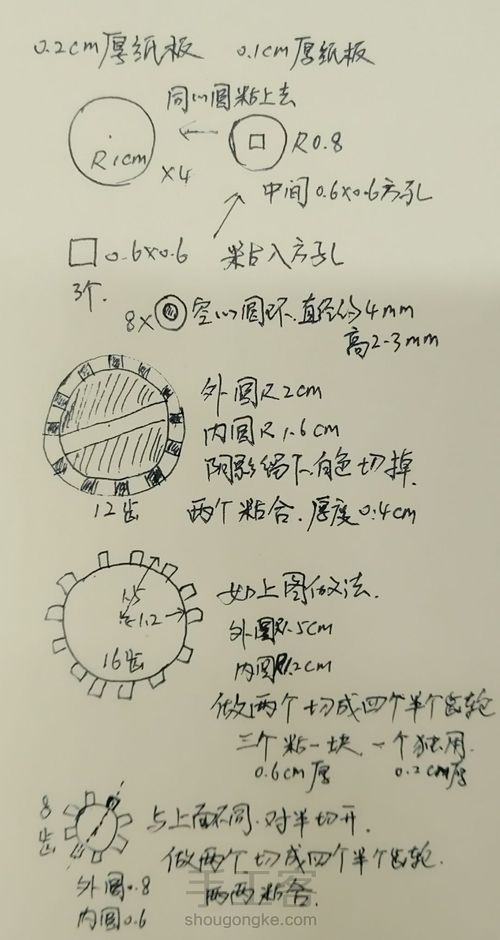 0.2cm厚纸板 0.1cm厚纸板
同心圆粘上去
R1cm
X4
R0.8
中间0.6x0.6方孔
0.6x0.6 粘入方孔
3个.
8X 空心圆环.直径约4mm
高2-3mm
外圆R2cm
内圆R1.6cm
阴影留下.白色切掉.
12齿
两个粘合.厚度0.4cm
1.5
1.2
16齿
如上图做法.
外圆R1.5cm
内圆R1.2cm
做两个切成四个半个齿轮
三个粘一块.一个独用.
0.6cm厚 0.2cm厚
8齿
与上面不同.对半切开.
做两个切成四个半个齿轮.
外圆0.8
两两粘合.
内圆0.6
手工客
shougongke.com